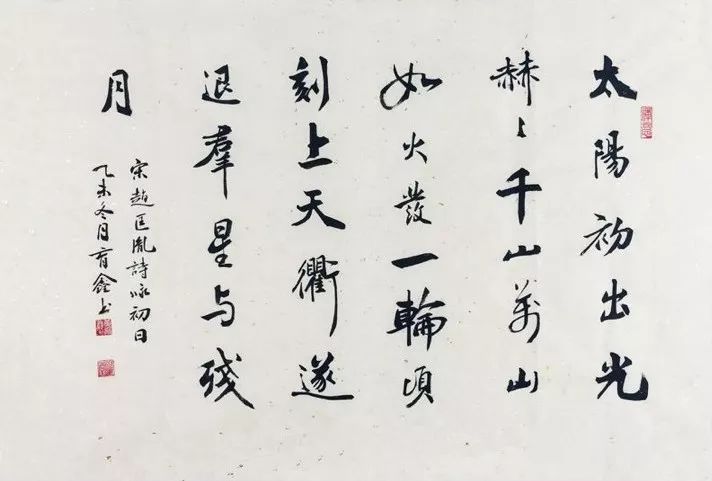 太陽初出光
赫〻千山萬山
如火發一輪頃
刻上天衢遂
退羣星与残
月
宋趙匡胤詩咏初日
乙未冬月育鑫书